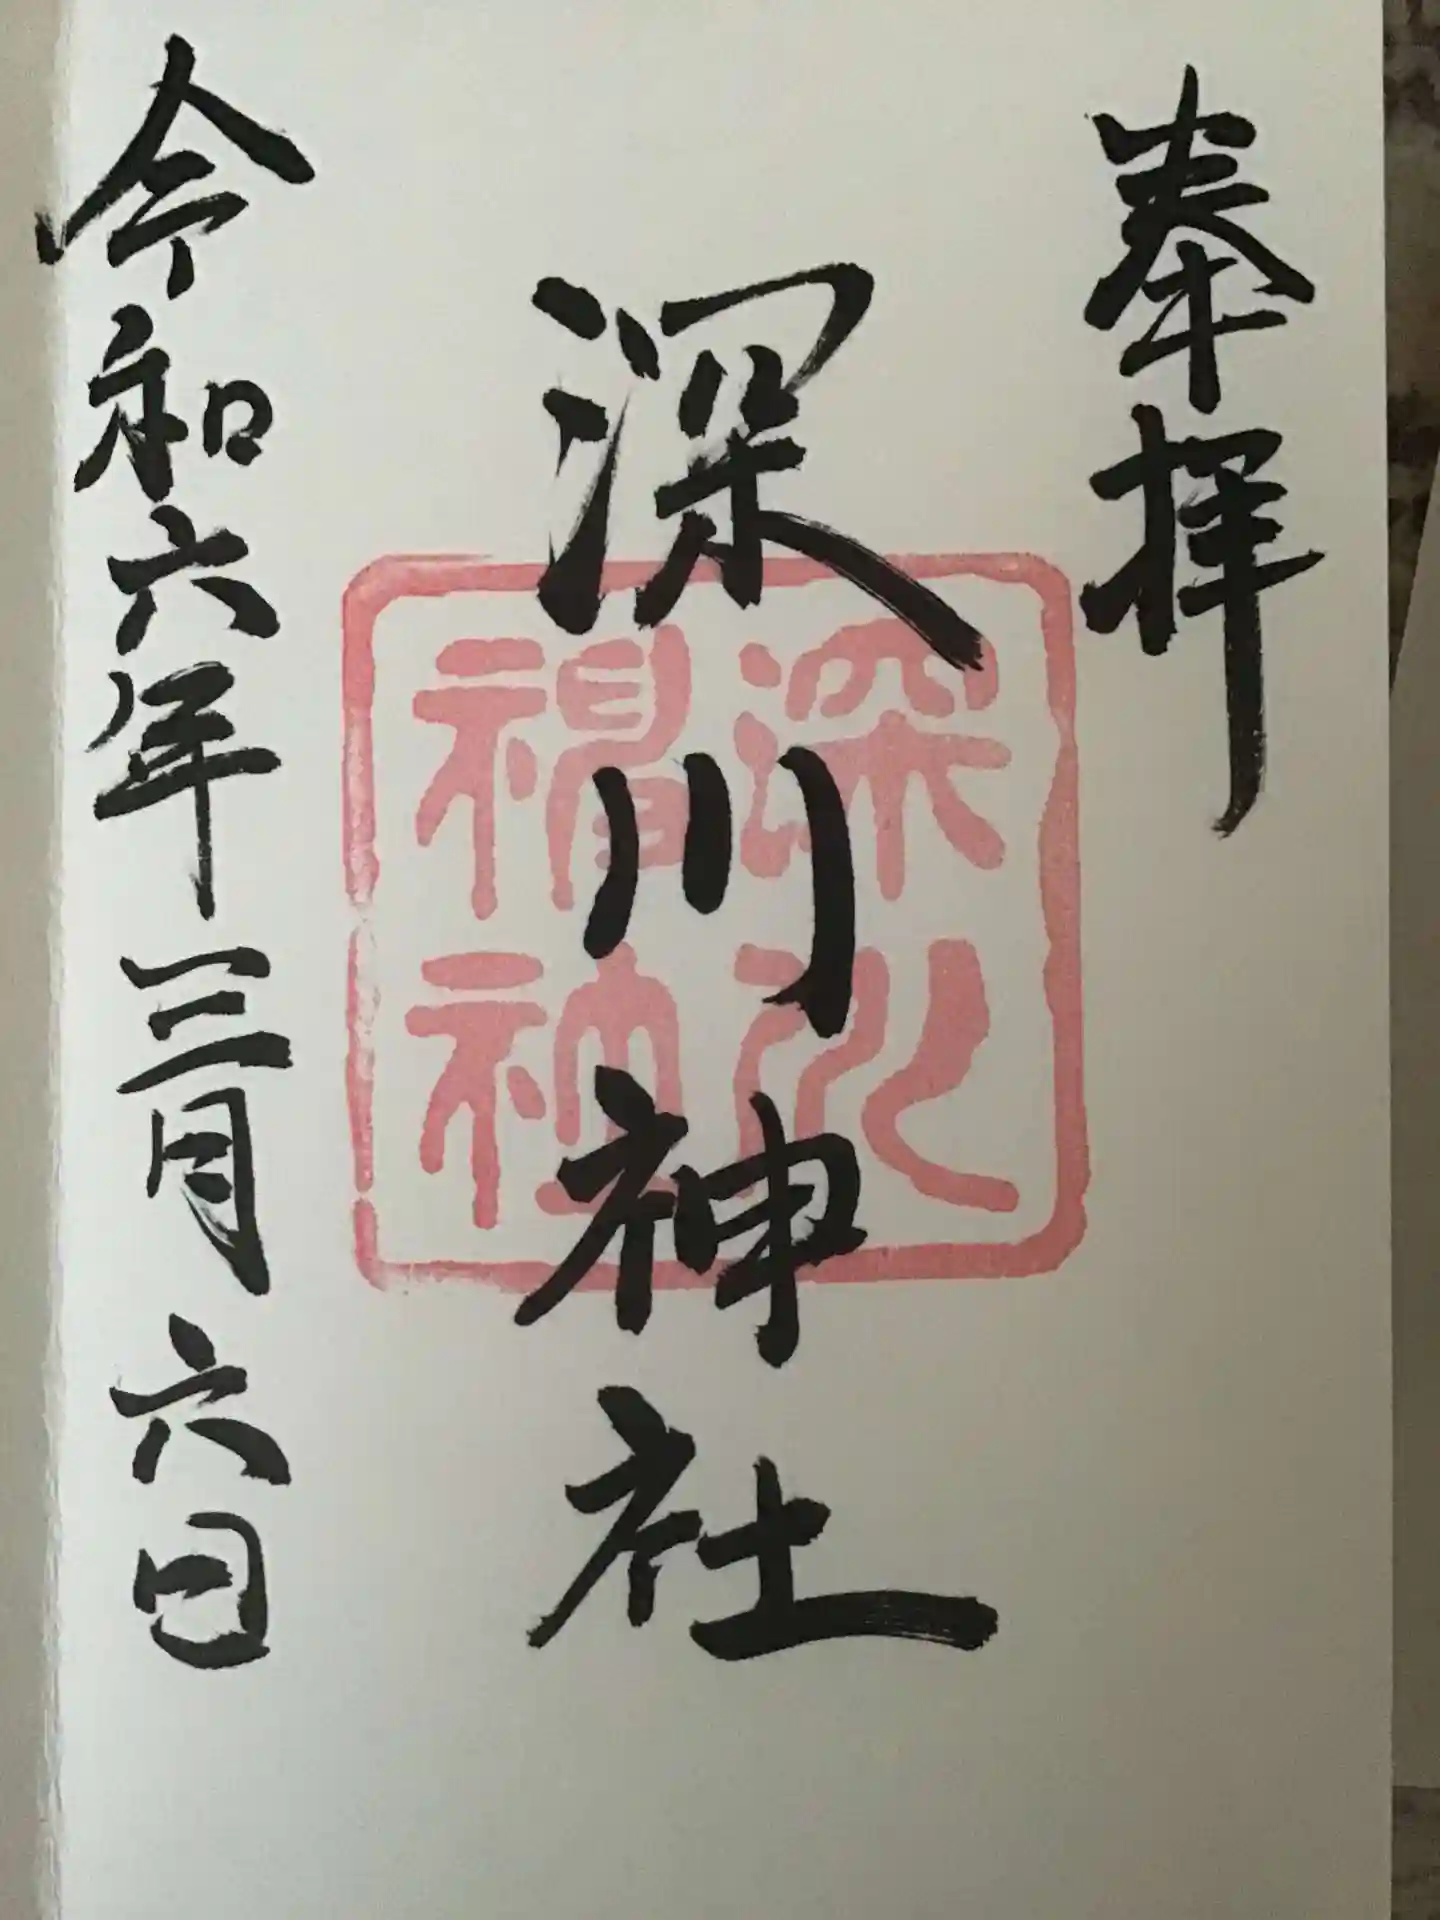 奉拝
深川神社
令和六年三月六日
深川
神社